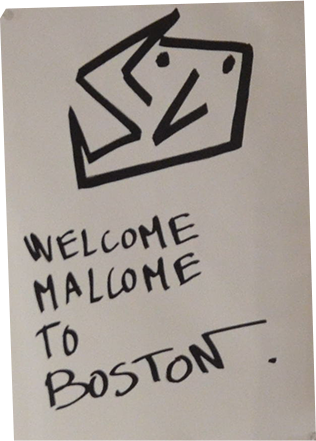 WELCOME
MALCOME
TO
BOSTON.